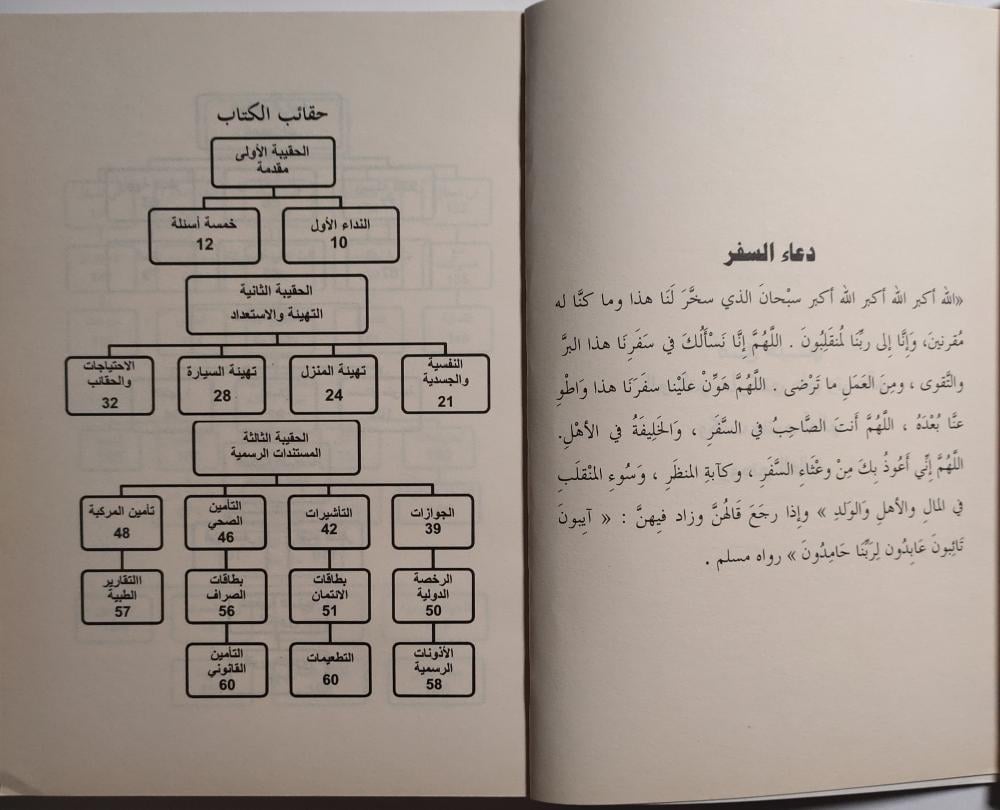 دعاء السفر
«الله أكبر الله أكبر الله أكبر سبْحانَ الذي سخَّرَ لَنَا هذا وما كنَّا له
مُقرنينَ، وَإِنَّا إلى ربِّنَا لمُنقَلِبُونَ . اللَّهُمَّ إِنَّا نَسْأَلُكَ في سَفَرِنَا هذا البرَّ
والتَّقوى ، ومِنَ العَمَلِ ما تَرْضى . اللَّهُمَّ هَوِّنْ علَيْنا سفَرَنَا هذا وَاطْوِ
عنَّا بُعْدَهُ ، اللَّهُمَّ أَنتَ الصَّاحِبُ في السَّفَرِ ، وَالخَلِيفَةُ في الأهْلِ.
اللَّهُمَّ إِنِّي أَعُوذُ بِكَ مِنْ وعْثَاءِ السَّفَرِ ، وكآبةِ المنظَرِ ، وَسُوءِ المنْقلَبِ
في المالِ والأهلِ وَالوَلدِ » وإذا رجَعَ قَالهُنَّ وزاد فيهنَّ : « آيِبونَ
تَائِبونَ عَابِدُون لِرَبِّنَا حَامِدُونَ » رواه مسلم .
حقائب الكتاب
الحقيبة الأولى
مقدمة
النداء الأول
10
خمسة أسئلة
12
الحقيبة الثانية
التهيئة والاستعداد
النفسية
والجسدية
21
تهيئة المنزل
24
تهيئة السيارة
28
الاحتياجات
والحقائب
32
الحقيبة الثالثة
المستندات الرسمية
الجوازات
39
التأشيرات
42
التأمين
الصحي
46
تأمين المركبة
48
الرخصة
الدولية
50
بطاقات
الائتمان
51
بطاقات
الصراف
56
االتقارير
الطبية
57
الأذونات
الرسمية
58
التطعيمات
60
التأمين
القانوني
60